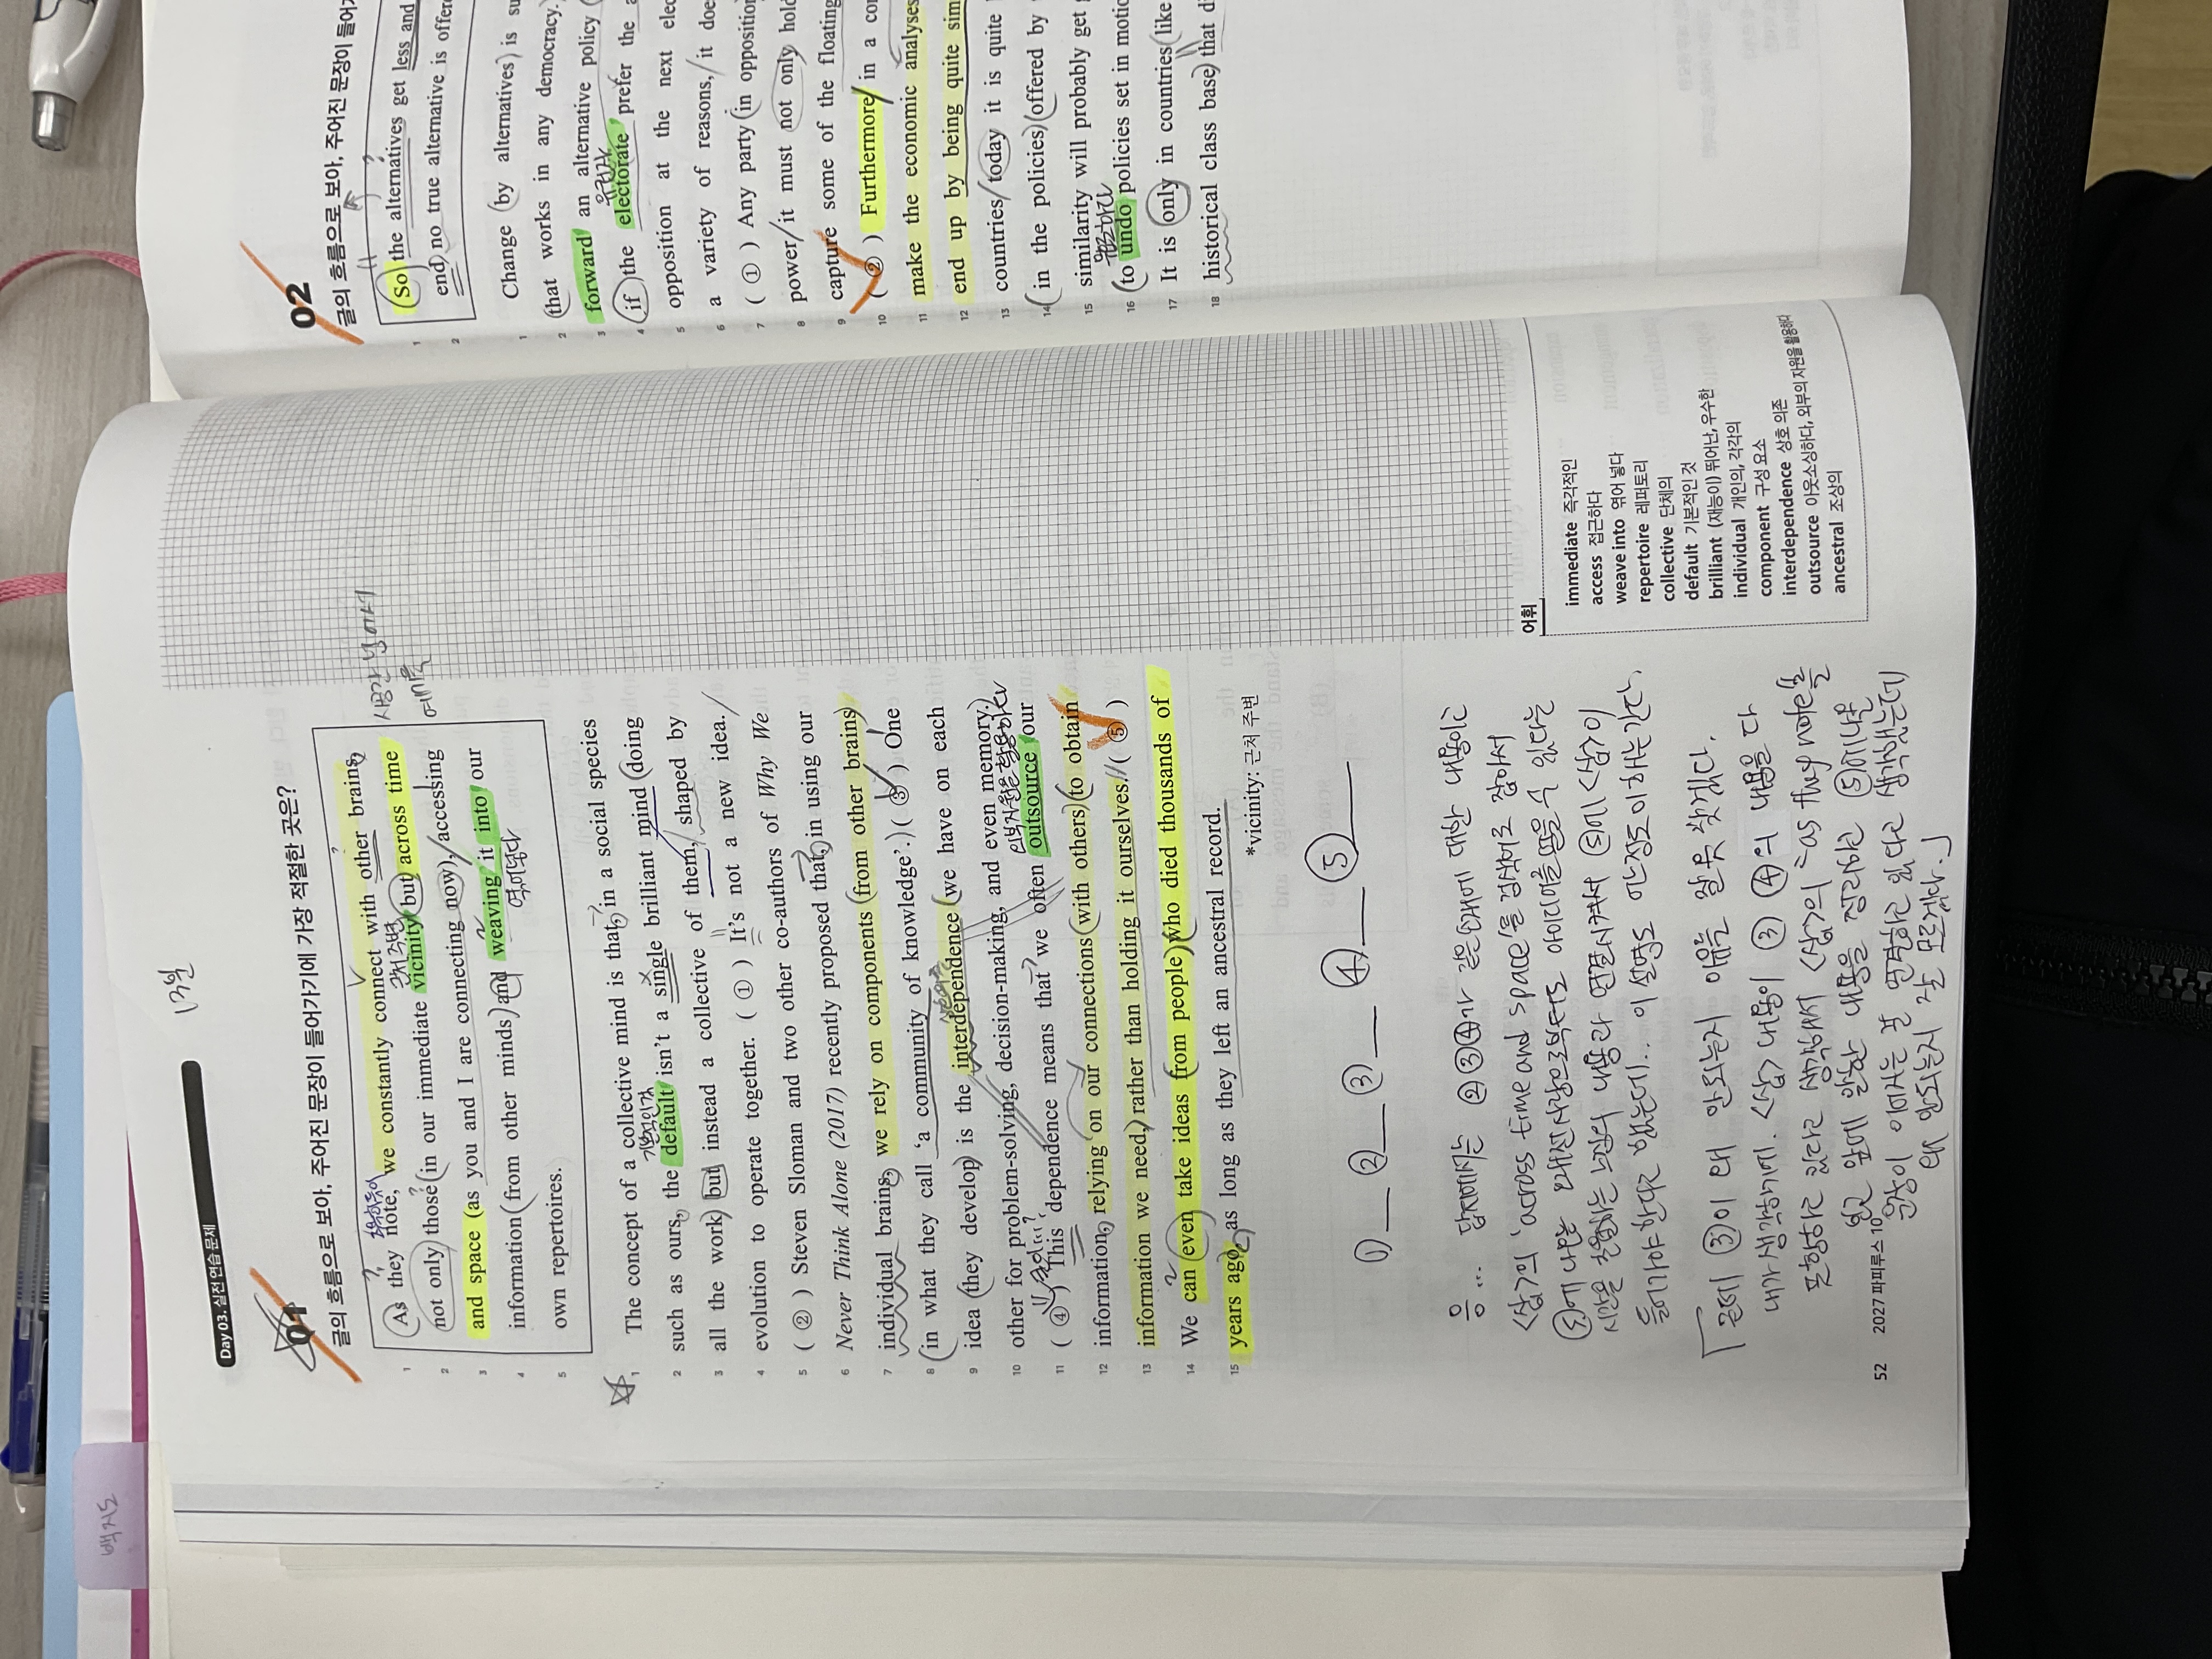 백지도
Day 03. 실전 연습 문제
01
글의 흐름으로 보아, 주어진 문장이 들어가기에 가장 적절한 곳은?
1 As they note, we constantly connect with other brains,
2 not only those in our immediate vicinity but across time
3 and space (as you and I are connecting now), accessing
4 information from other minds and weaving it into our
5 own repertoires.
근처, 주변
엮어넣다
시공간 넘어서
1 The concept of a collective mind is that, in a social species
2 such as ours, the default isn't a single brilliant mind doing
3 all the work but instead a collective of them, shaped by
4 evolution to operate together. ( ① ) It's not a new idea.
5 ( ② ) Steven Sloman and two other co-authors of Why We
6 Never Think Alone (2017) recently proposed that, in using our
7 individual brains, we rely on components from other brains
8 in what they call 'a community of knowledge'. ( ③ ) One
9 idea they develop is the interdependence we have on each
10 other for problem-solving, decision-making, and even memory.
11 ( ④ ) This dependence means that we often outsource our
12 information, relying on our connections with others to obtain
13 information we need rather than holding it ourselves. ( ⑤ )
14 We can even take ideas from people who died thousands of
15 years ago, as long as they left an ancestral record.
*vicinity: 근처 주변
① ② ③ ④ ⑤
음... 답지에서는 ②③④가 같은 단계에 대한 내용이고
<삽>의 'across time and space'를 검색어로 잡아서
⑤에 나온 옛날 사람으로부터도 아이디어를 얻을 수 있다는
시간을 초월하는 느낌의 내용과 연결시켜서 ⑤에 <삽>이
들어가야 한다고 했는데... 이 설명도 안정도 이해는 간다.
근데 ③이 왜 안되는지 이유를 잘 못 찾겠다.
내가 생각하기에. <삽> 내용이 ③ ④의 내용을 다
포함하고 있다고 생각해서 <삽>의 "as they note"을
보고 앞에 말한 내용을 정리하고 ⑤에 나온
문장이 예시는 본 연결하고 있다고 생각했는데
왜 안되는지 잘 모르겠다.
어휘
immediate 즉각적인
access 접근하다
weave into 엮어 넣다
repertoire 레퍼토리
collective 단체의
default 기본적인 것
brilliant (재능이) 뛰어난, 우수한
individual 개인의, 각각의
component 구성 요소
interdependence 상호 의존
outsource 아웃소싱하다, 외부의 자원을 활용하다
ancestral 조상의
52 2027 파피루스 10
02
글의 흐름으로 보아, 주어진 문장이 들어가
1 So the alternatives get less and
2 end no true alternative is offer
1 Change (by alternatives) is su
2 that works in any democracy.
3 forward an alternative policy
4 if the electorate prefer the a
유권자
5 opposition at the next elec
6 a variety of reasons, it doe
7 ( ① ) Any party in opposition
8 power, it must not only hold
9 capture some of the floating
10 ( ② ) Furthermore, in a con
11 make the economic analyses
12 end up by being quite sim
13 countries today it is quite
14 in the policies offered by
15 similarity will probably get
16 to undo policies set in motio
17 It is only in countries (like
18 historical class base) that di